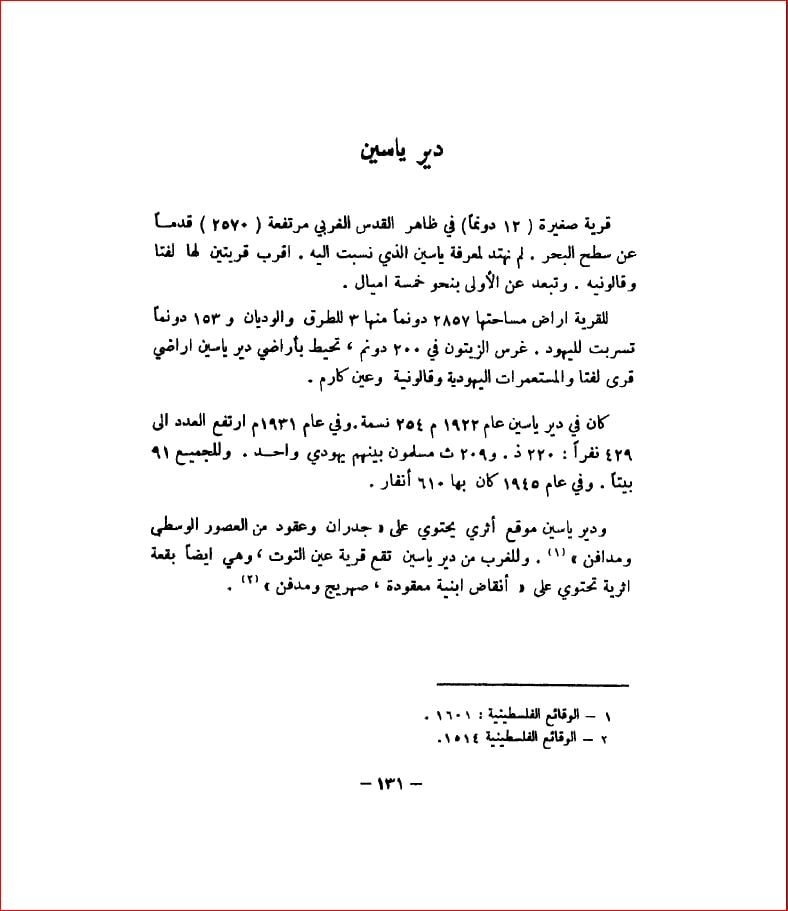 دير ياسين
قرية صغيرة ( ١٢ دونماً) في ظاهر القدس الغربي مرتفعة ( ٢٥٧٠ ) قدمـــاً
عن سطح البحر . لم نهتد لمعرفة ياسين الذي نسبت اليه . اقرب قريتين لها لفتا
وقالونيه . وتبعد عن الأولى بنحو خمسة اميال .
للقرية اراض مساحتها ٢٨٥٧ دونماً منها ٣ للطرق والوديان و ١٥٣ دونماً
تسربت لليهود . غرس الزيتون في ٢٠٠ دونم ، تحيط بأراضي دير ياسين اراضي
قرى لفتا والمستعمرات اليهودية وقالونية وعين كارم .
كان في دير ياسين عام ١٩٢٢ م ٢٥٤ نسمة.وفي عام ١٩٣١م ارتفع العدد الى
٤٢٩ نفراً : ٢٢٠ ذ . و٢٠٩ ث مسلمون بينهم يهودي واحــد . وللجميـع ٩١
بيتاً . وفي عام ١٩٤٥ كان بها ٦١٠ أنفار .
ودير ياسين موقع أثري يحتوي على « جدران وعقود من العصور الوسطى
ومدافن » (١) . وللغرب من دير ياسين تقع قرية عين التوت ، وهي ايضاً بقعة
اثرية تحتوي على « أنقاض ابنية معقودة ، صهريج ومدفن » (٢) .
١ – الوقائع الفلسطينية : ١٦٠١ .
٢ – الوقائع الفلسطينية ١٥١٤.
– ١٣١ –